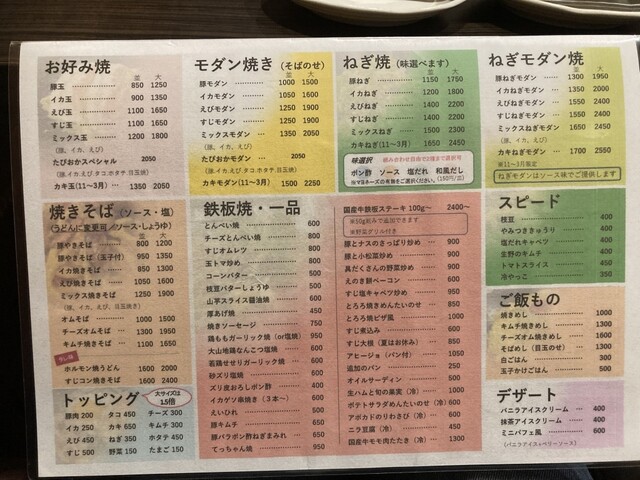 お好み焼
並 大
豚玉 850 1250
イカ玉 900 1350
えび玉 1100 1650
すじ玉 1100 1650
ミックス玉 1200 1800
(豚、イカ、えび)
たぴおかスペシャル 2050
(豚、イカ、えび、タコ、ホタテ、目玉焼)
カキ玉(11〜3月) 1350 2050
モダン焼き(そばのせ)
並 大
豚モダン 1000 1500
イカモダン 1050 1600
えびモダン 1250 1900
すじモダン 1250 1900
ミックスモダン 1350 2050
(豚、イカ、えび)
たぴおかモダン 2050
(豚、イカ、えび、タコ、ホタテ、目玉焼)
カキモダン(11〜3月) 1500 2250
ねぎ焼(味選べます)
並 大
豚ねぎ 1150 1750
イカねぎ 1200 1800
えびねぎ 1400 2200
すじねぎ 1400 2200
ミックスねぎ 1500 2300
カキねぎ(11〜3月) 1650 2450
味選択
ポン酢 ソース 塩だれ 和風だし
ねぎモダン焼
並 大
豚ねぎモダン 1300 1950
イカねぎモダン 1350 2000
えびねぎモダン 1550 2400
すじねぎモダン 1550 2400
ミックスねぎモダン 1650 2450
(豚、イカ、えび)
カキねぎモダン 1700 2550
※11〜3月限定
ねぎモダンはソース味でご提供します
焼きそば(ソース・塩)
(うどんに変更可／ソース・しょうゆ)
並 大
豚焼きそば 800 1200
豚焼きそば(玉子付) 950 1350
イカ焼きそば 850 1300
えび焼きそば 1050 1600
ミックス焼きそば 1250 1900
(豚、イカ、えび、目玉焼)
オムそば 1000 1500
チーズオムそば 1300 1950
キムチ焼きそば 1100 1650
ホルモン焼うどん 1600
すじコン焼きそば 1600 2400
トッピング
大サイズは
1.5倍
豚肉 200 タコ 450 チーズ 300
イカ 250 カキ 650 キムチ 300
えび 450 ねぎ 350 ホタテ 450
すじ 500 野菜 150 たまご 150
鉄板焼・一品
とんぺい焼 600
チーズとんぺい焼 800
すじオムレツ 800
玉トマ炒め 800
コーンバター 500
枝豆バターしょうゆ 500
山芋スライス醤油焼 600
厚あげ焼 450
焼きソーセージ 750
鶏ももガーリック焼(or塩焼) 950
大山地鶏なんこつ塩焼 600
若鶏せせりガーリック焼 600
砂ズリ塩焼 600
ズリ皮おろしポン酢 400
イカゲソ串焼き(3本〜) 600
えいひれ 500
豚キムチ 650
豚バラポン酢ねぎまみれ 650
てっちゃん焼 950
国産牛鉄板ステーキ 100g〜 2400〜
※50g刻みで追加できます
※野菜グリル付き
豚とナスのさっぱり炒め 900
豚と小松菜炒め 900
具だくさんの野菜炒め 950
えのき鮮ベーコン 600
すじ塩キャベツ炒め 950
とろろ焼きめんたいのせ 850
とろろ焼ピザ風 1000
すじ煮込み 600
すじ大根(夏はお休み) 850
アヒージョ(パン付) 1050
追加のパン 250
オイルサーディン 500
生ハムと旬の果実(冷) 1000
ポテトサラダめんたいのせ(冷) 600
アボカドのわさび(冷) 600
ニラ豆腐(冷) 450
国産牛モモ肉たたき(冷) 1300
スピード
枝豆 400
やみつききゅうり 400
塩だれキャベツ 400
生野のキムチ 400
トマトスライス 450
冷やっこ 350
ご飯もの
焼きめし 1000
キムチ焼きめし 1300
チーズオム焼きめし 1300
そばめし(目玉のせ) 1300
白ごはん 300
玉子かけごはん 500
デザート
バニラアイスクリーム 400
抹茶アイスクリーム 400
ミニパフェ風 600
(バニラアイス+ベリーソース)